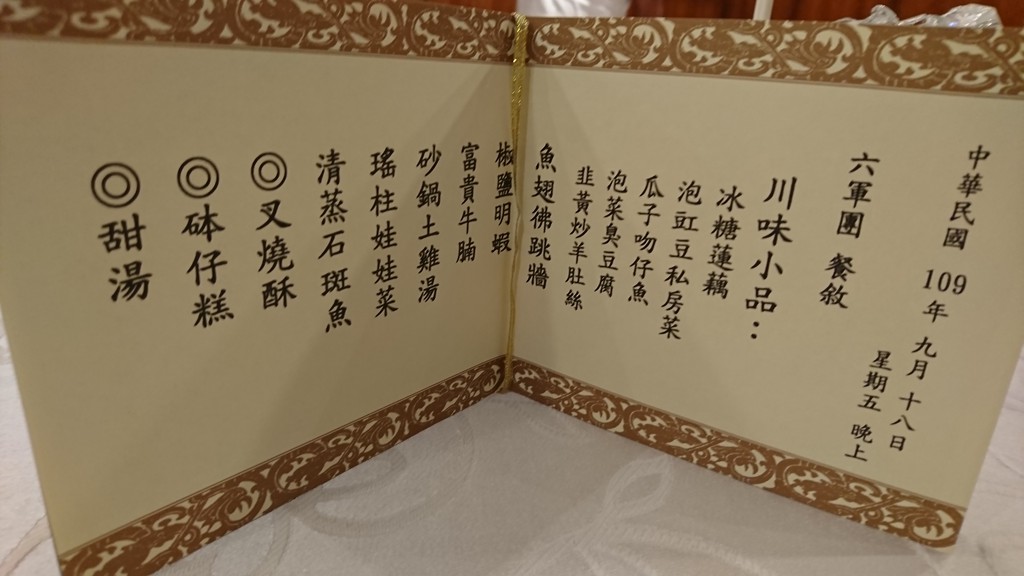 中華民國 109年 九月 十八日
星期五 晚上
六軍團 餐敘
川味小品：
冰糖蓮藕
泡豇豆私房菜
瓜子吻仔魚
泡菜臭豆腐
韭黃炒羊肚絲
魚翅彿跳牆
椒鹽明蝦
富貴牛腩
砂鍋土雞湯
瑤柱娃娃菜
清蒸石斑魚
◎叉燒酥
◎砵仔糕
◎甜湯